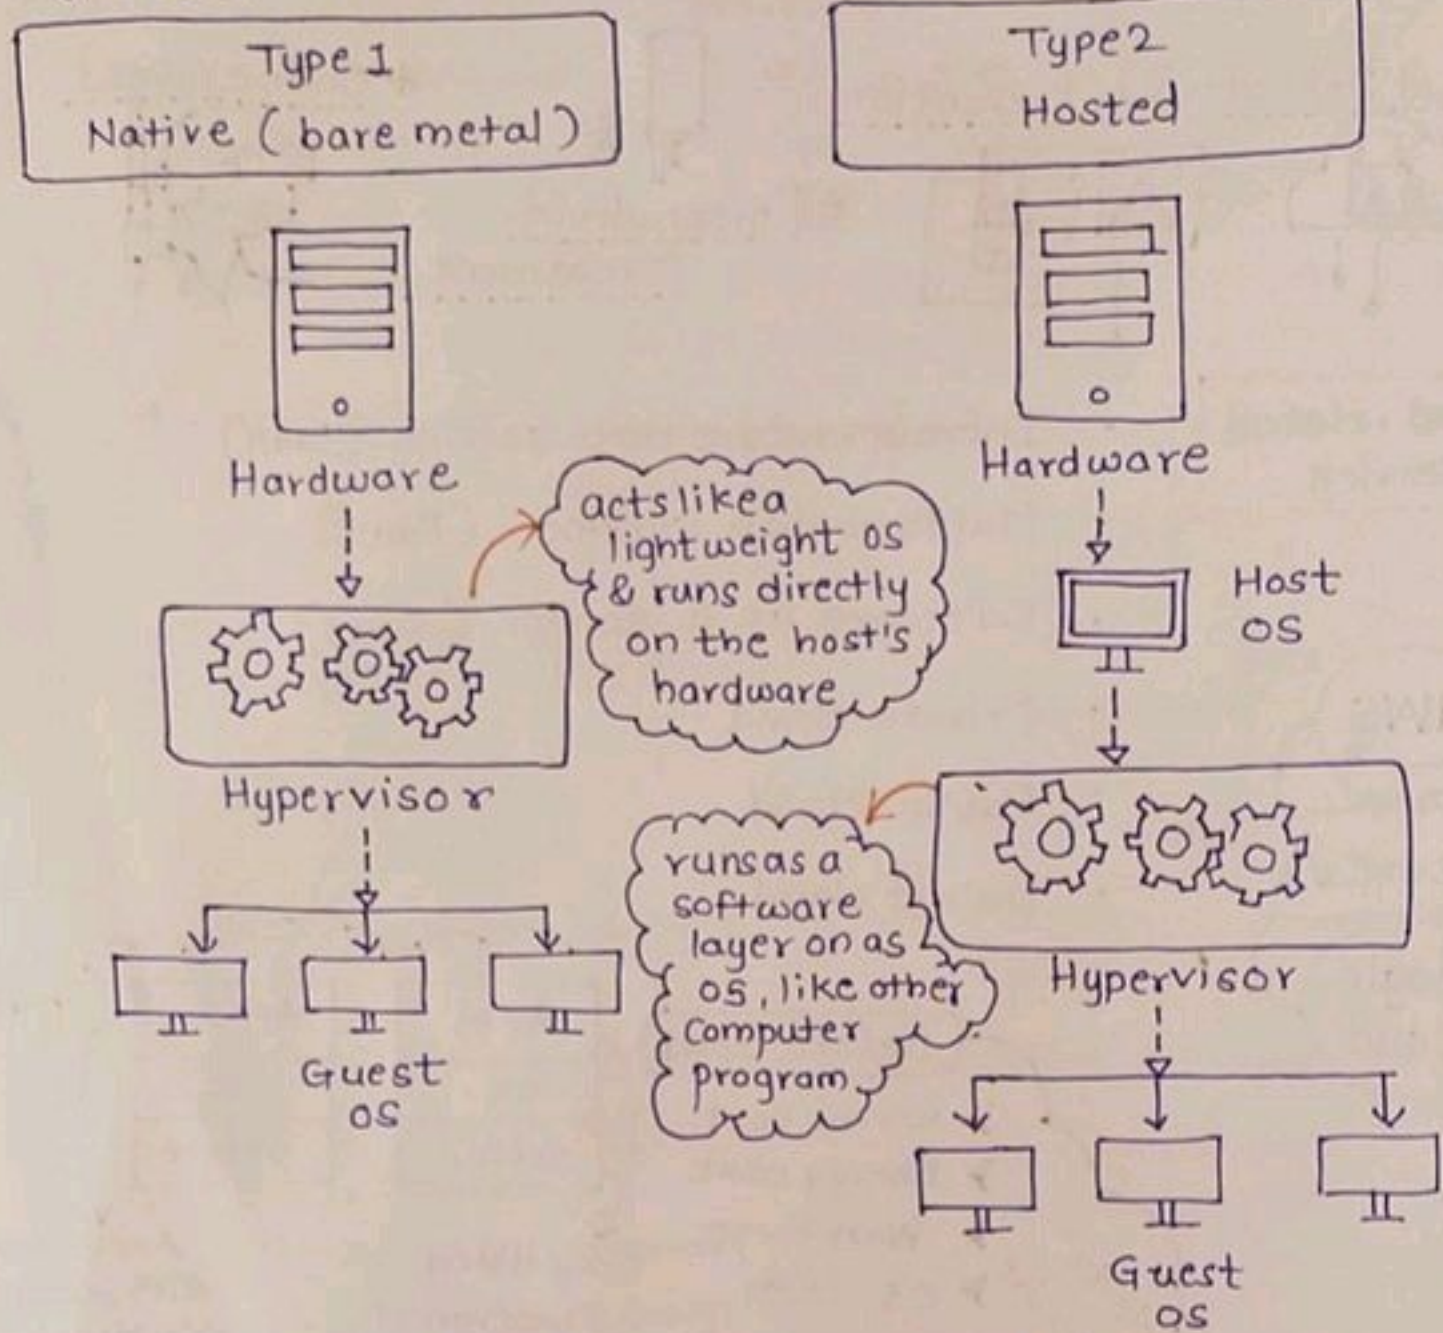 Type 1
Native (bare metal)
Hardware
acts like a
lightweight OS
& runs directly
on the host's
hardware
Hypervisor
Guest
OS
Type 2
Hosted
Hardware
Host
OS
runs as a
software
layer on as
OS, like other
Computer
program
Hypervisor
Guest
OS